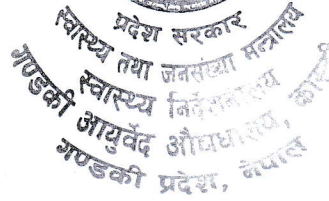 प्रदेश सरकार
स्वास्थ्य तथा जनसंख्या मन्त्रालय
स्वास्थ्य निर्देशनालय
गण्डकी आयुर्वेद औषधालय,
गण्डकी प्रदेश, नेपाल